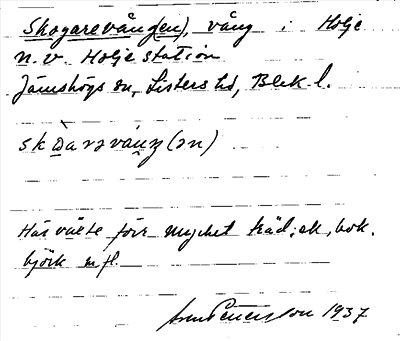 Skogarevång(en), vång i Holje
n.v. Holje station
Jämshögs sn, Listers hd, Blek l.
skɷ̀arəváŋ(ən)
Här växte förr mycket träd; ek, bok,
björk m.fl.
Petersson 1937